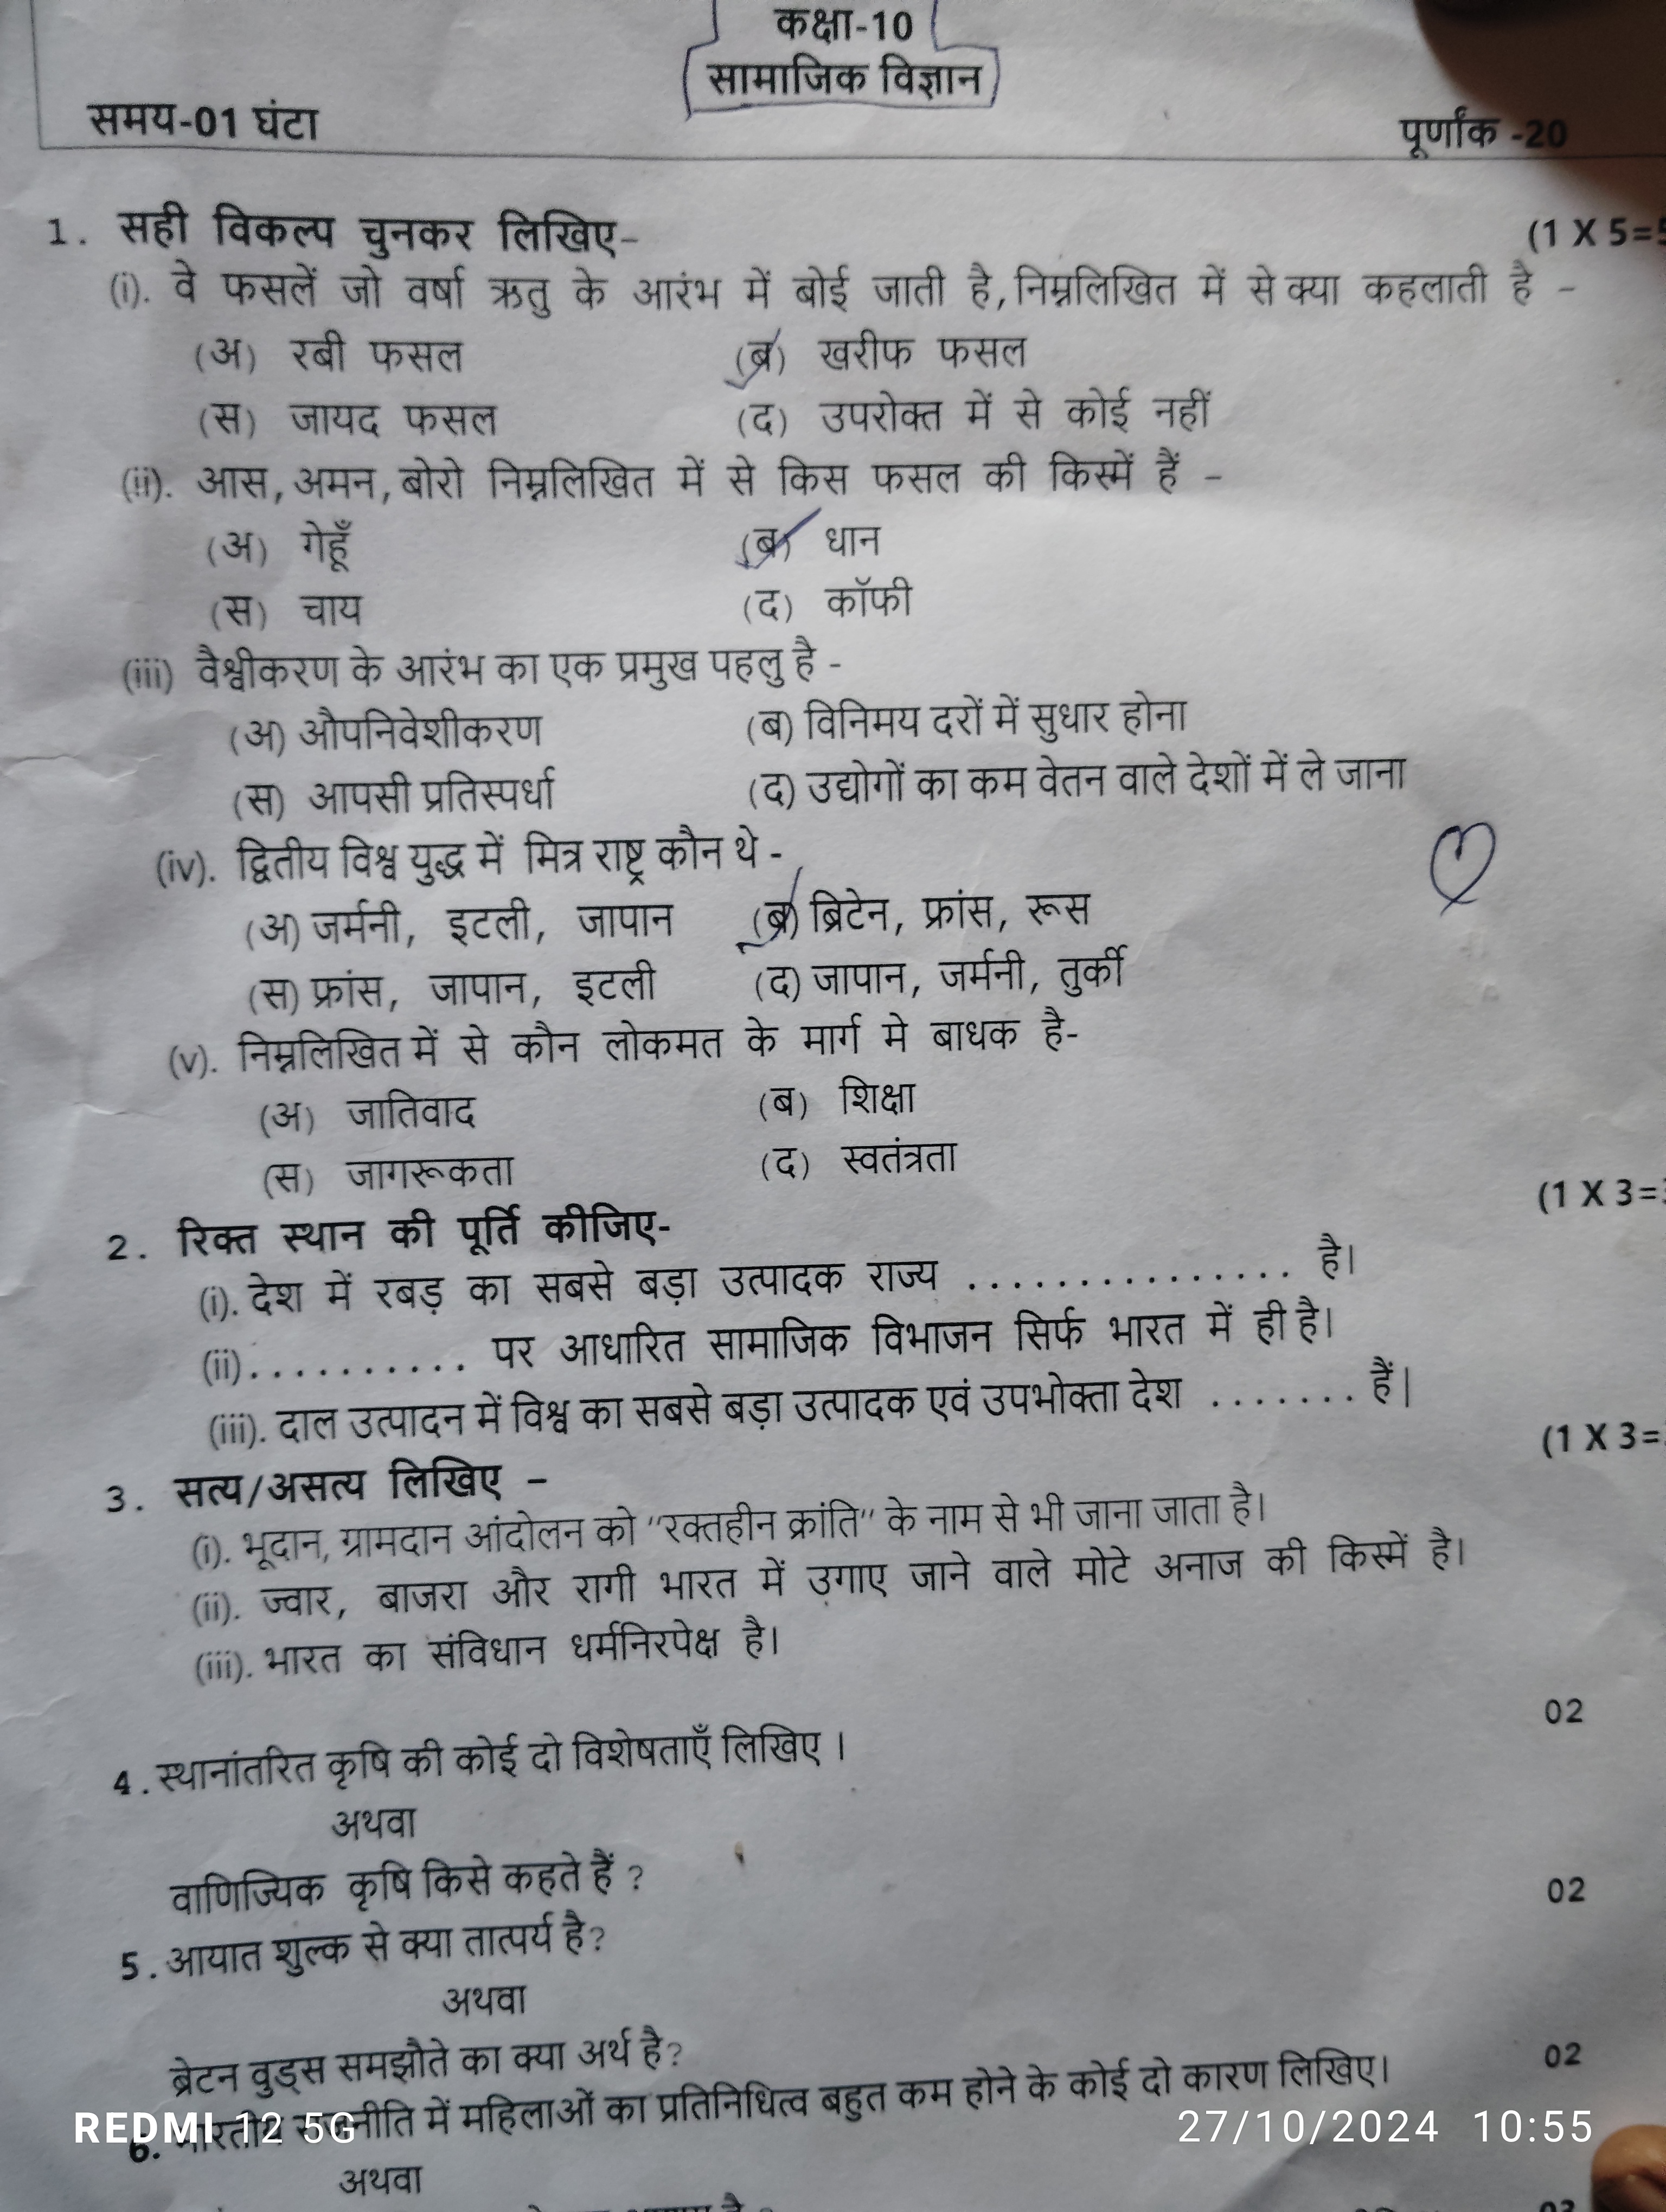 कक्षा-10
सामाजिक विज्ञान
समय-01 घंटा पूर्णांक -20
1. सही विकल्प चुनकर लिखिए- (1 X 5=5
(i). वे फसलें जो वर्षा ऋतु के आरंभ में बोई जाती है, निम्नलिखित में से क्या कहलाती है -
(अ) रबी फसल (ब) खरीफ फसल
(स) जायद फसल (द) उपरोक्त में से कोई नहीं
(ii). आस, अमन, बोरो निम्नलिखित में से किस फसल की किस्में हैं -
(अ) गेहूँ (ब) धान
(स) चाय (द) कॉफी
(iii) वैश्वीकरण के आरंभ का एक प्रमुख पहलु है -
(अ) औपनिवेशीकरण (ब) विनिमय दरों में सुधार होना
(स) आपसी प्रतिस्पर्धा (द) उद्योगों का कम वेतन वाले देशों में ले जाना
(iv). द्वितीय विश्व युद्ध में मित्र राष्ट्र कौन थे -
(अ) जर्मनी, इटली, जापान (ब) ब्रिटेन, फ्रांस, रूस
(स) फ्रांस, जापान, इटली (द) जापान, जर्मनी, तुर्की
(v). निम्नलिखित में से कौन लोकमत के मार्ग मे बाधक है-
(अ) जातिवाद (ब) शिक्षा
(स) जागरूकता (द) स्वतंत्रता
2. रिक्त स्थान की पूर्ति कीजिए- (1 X 3=
(i). देश में रबड़ का सबसे बड़ा उत्पादक राज्य ............... है।
(ii).......... पर आधारित सामाजिक विभाजन सिर्फ भारत में ही है।
(iii). दाल उत्पादन में विश्व का सबसे बड़ा उत्पादक एवं उपभोक्ता देश ....... हैं|
3. सत्य/असत्य लिखिए - (1 X 3=
(i). भूदान, ग्रामदान आंदोलन को "रक्तहीन क्रांति" के नाम से भी जाना जाता है।
(ii). ज्वार, बाजरा और रागी भारत में उगाए जाने वाले मोटे अनाज की किस्में है।
(iii). भारत का संविधान धर्मनिरपेक्ष है।
4. स्थानांतरित कृषि की कोई दो विशेषताएँ लिखिए । 02
अथवा
वाणिज्यिक कृषि किसे कहते हैं ?
5. आयात शुल्क से क्या तात्पर्य है? 02
अथवा
ब्रेटन वुड्स समझौते का क्या अर्थ है?
6. भारतीय राजनीति में महिलाओं का प्रतिनिधित्व बहुत कम होने के कोई दो कारण लिखिए। 02
REDMI 12 5G 27/10/2024 10:55
अथवा